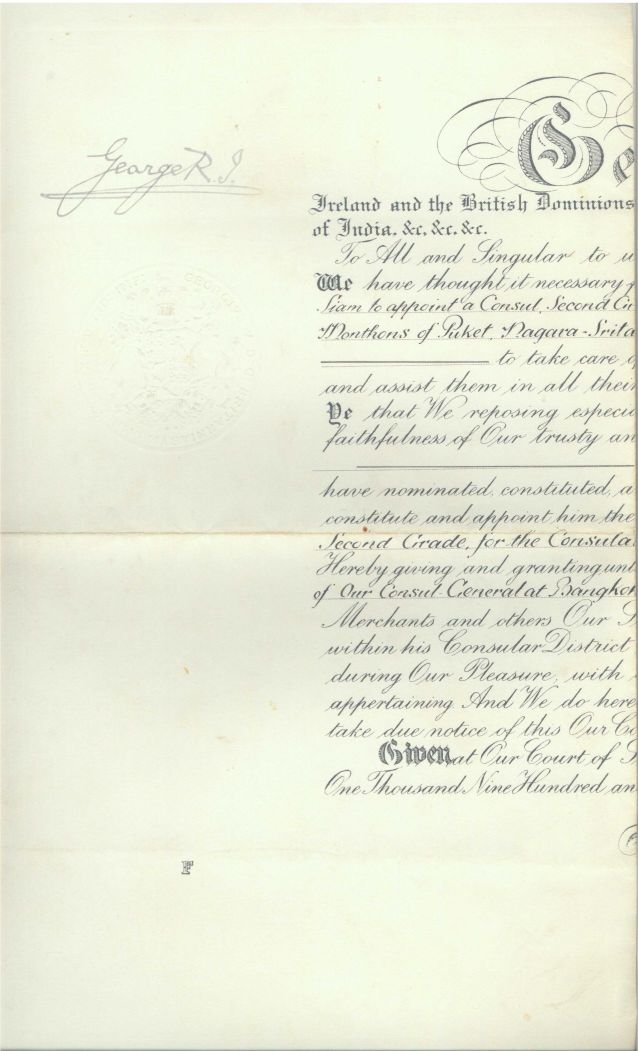 George R. I.
Ge
Ireland and the British Dominions
of India, &c, &c, &c.
To All and Singular to
We have thought it necessary
Siam to appoint a Consul, Second
Monthons of Puket, Nagara-Srita
to take care
and assist them in all their
Ye that We reposing especi
faithfulness of Our trusty an
have nominated, constituted, a
constitute and appoint him the
Second Grade, for the Consula
Hereby giving and granting unt
of Our Consul-General at Bangkok
Merchants and others Our S
within his Consular District
during Our Pleasure, with
appertaining And We do here
take due notice of this Our Co
Given at Our Court of S
One Thousand Nine Hundred an
F